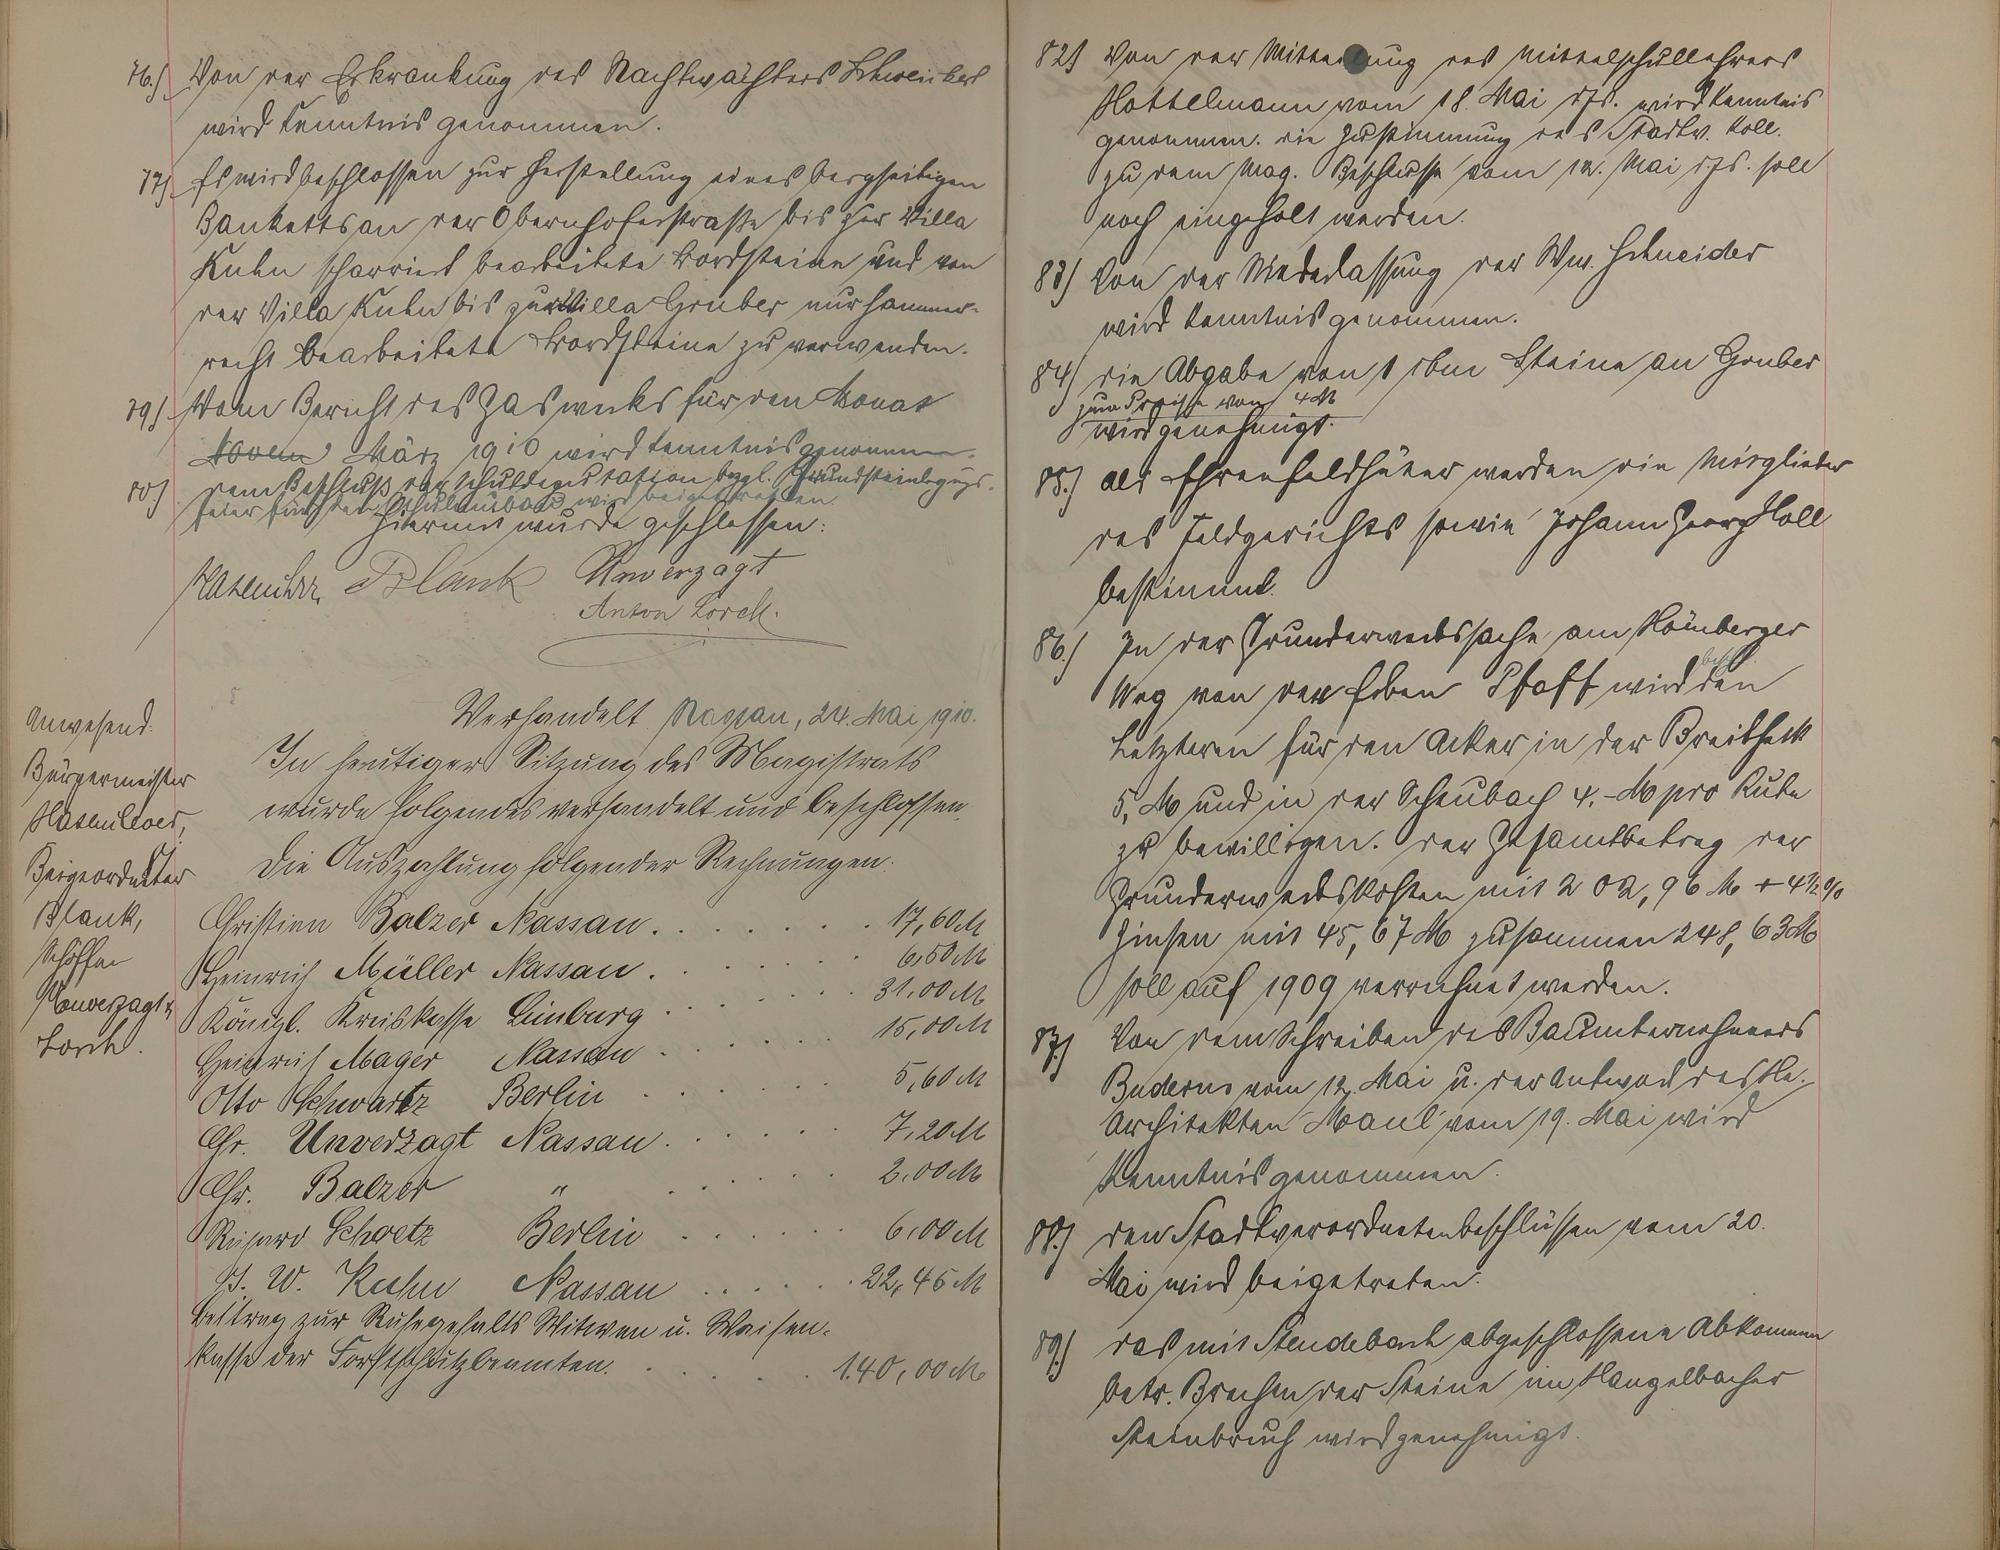 76.) Von der Erkrankung des Nachtwächters Schweikert
wird Kenntnis genommen.
77) Es wird beschlossen zur Herstellung eines bergseitigen
Banketts an der Obernhoferstraße bis zur Villa
Kuhn scharriert bearbeitete Bordsteine und von
der Villa Kuhn bis zur Villa Gruber nur hammer-
recht bearbeitete Bordsteine zu verwenden.
79) Vom Bericht des Gaswerks für den Monat
März 1910 wird Kenntnis genommen.
80) Dem Beschluß der Schuldeputation bzgl. Grundsteinlegungs-
feier für den Schulneubau wird beigetreten
Hiermit wurde geschlossen:
Hasenclever Blank Unverzagt
Anton Lorch.
Verhandelt Nassau, 24. Mai 1910.
Anwesend:
Bürgermeister
Hasenclever,
Beigeordneter
Blank,
Schöffen
Unverzagt u.
Lorch.
In heutiger Sitzung des Magistrats
wurde folgendes verhandelt und beschlossen.
Die Auszahlung folgender Rechnungen.
Christian Balzer Nassau. . . . . . . 17,60 M
Heinrich Müller Nassau. . . . . . . 6,50 M
Königl. Kreiskasse Limburg . . . . . . 31,00 M
Heinrich Mager Nassau . . . . . . 15,00 M
Otto Schwartz Berlin . . . . . . 5,60 M
Chr. Unverzagt Nassau. . . . . . 7,20 M
Chr. Balzer " . . . . . . 2,00 M
Richard Schoetz Berlin . . . . . . 6,00 M
W. Kuhn Nassau . . . . . 22,45 M
Beitrag zur Ruhegehalts Witwen u. Waisen-
kasse der Forstschutzbeamten. . . . . . 140,00 M
82) Von der Mitteilung des Mittelschullehrers
Hottelmann vom 18. Mai ds. Js. wird Kenntnis
genommen. Die Zustimmung des Stadtv. Koll.
zu dem Mag. Beschlusse vom 12. Mai ds. Js. soll
noch eingeholt werden.
83) Von der Niederlassung der Ww. Schneider
wird Kenntnis genommen.
84) Die Abgabe von 1 cbm Steine an Gruber
zum Preise von 4 M
wird genehmigt.
85.) Als Ehrenfeldhüter werden die Mitglieder
des Feldgerichts sowie Johann Georg Holl
bestimmt.
86.) In der Grunderwerbssache am Hömberger
Weg von den Erben Pfaff wird den
Letzteren für den Acker in der Breitheck
5,- M und in der Scheubach 4.- M pro Rute
zu bewilligen. Der Gesamtbetrag der
Grunderwerbskosten mit 202,96 M + 4 1/2 %
Zinsen mit 45,67 M zusammen 248,63 M
soll auf 1909 verrechnet werden.
87.) Von dem Schreiben des Bauunternehmers
Buderus vom 12. Mai u. der Antwort des Hr.
Architekten Maul vom 19. Mai wird
Kenntnis genommen.
88.) Den Stadtverordnetenbeschlüssen vom 20.
Mai wird beigetreten.
89.) Das mit Stendebach abgeschlossene Abkommen
betr. Brechen der Steine im Hangelbacher
Steinbruch wird genehmigt.